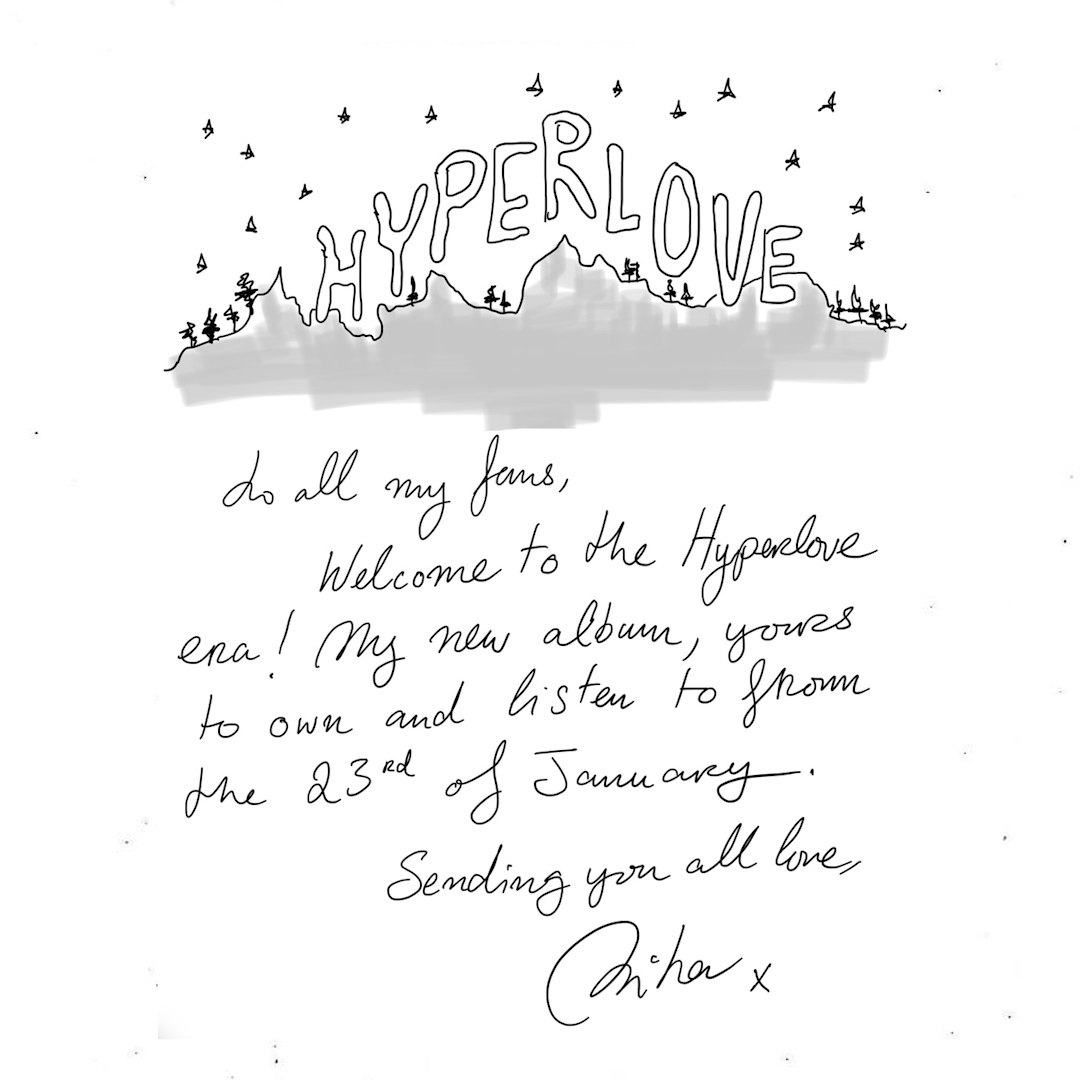 HYPERLOVE
To all my fans,
Welcome to the Hyperlove
era! My new album, yours
to own and listen to from
the 23rd of January.
Sending you all love,
Mika x